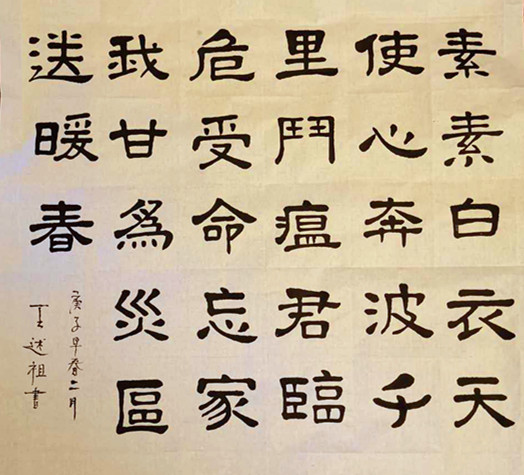 素素白衣天
使心奔波千
里鬥瘟君臨
危受命忘家
我甘為災區
送暖春
庚子早春二月
王述祖書